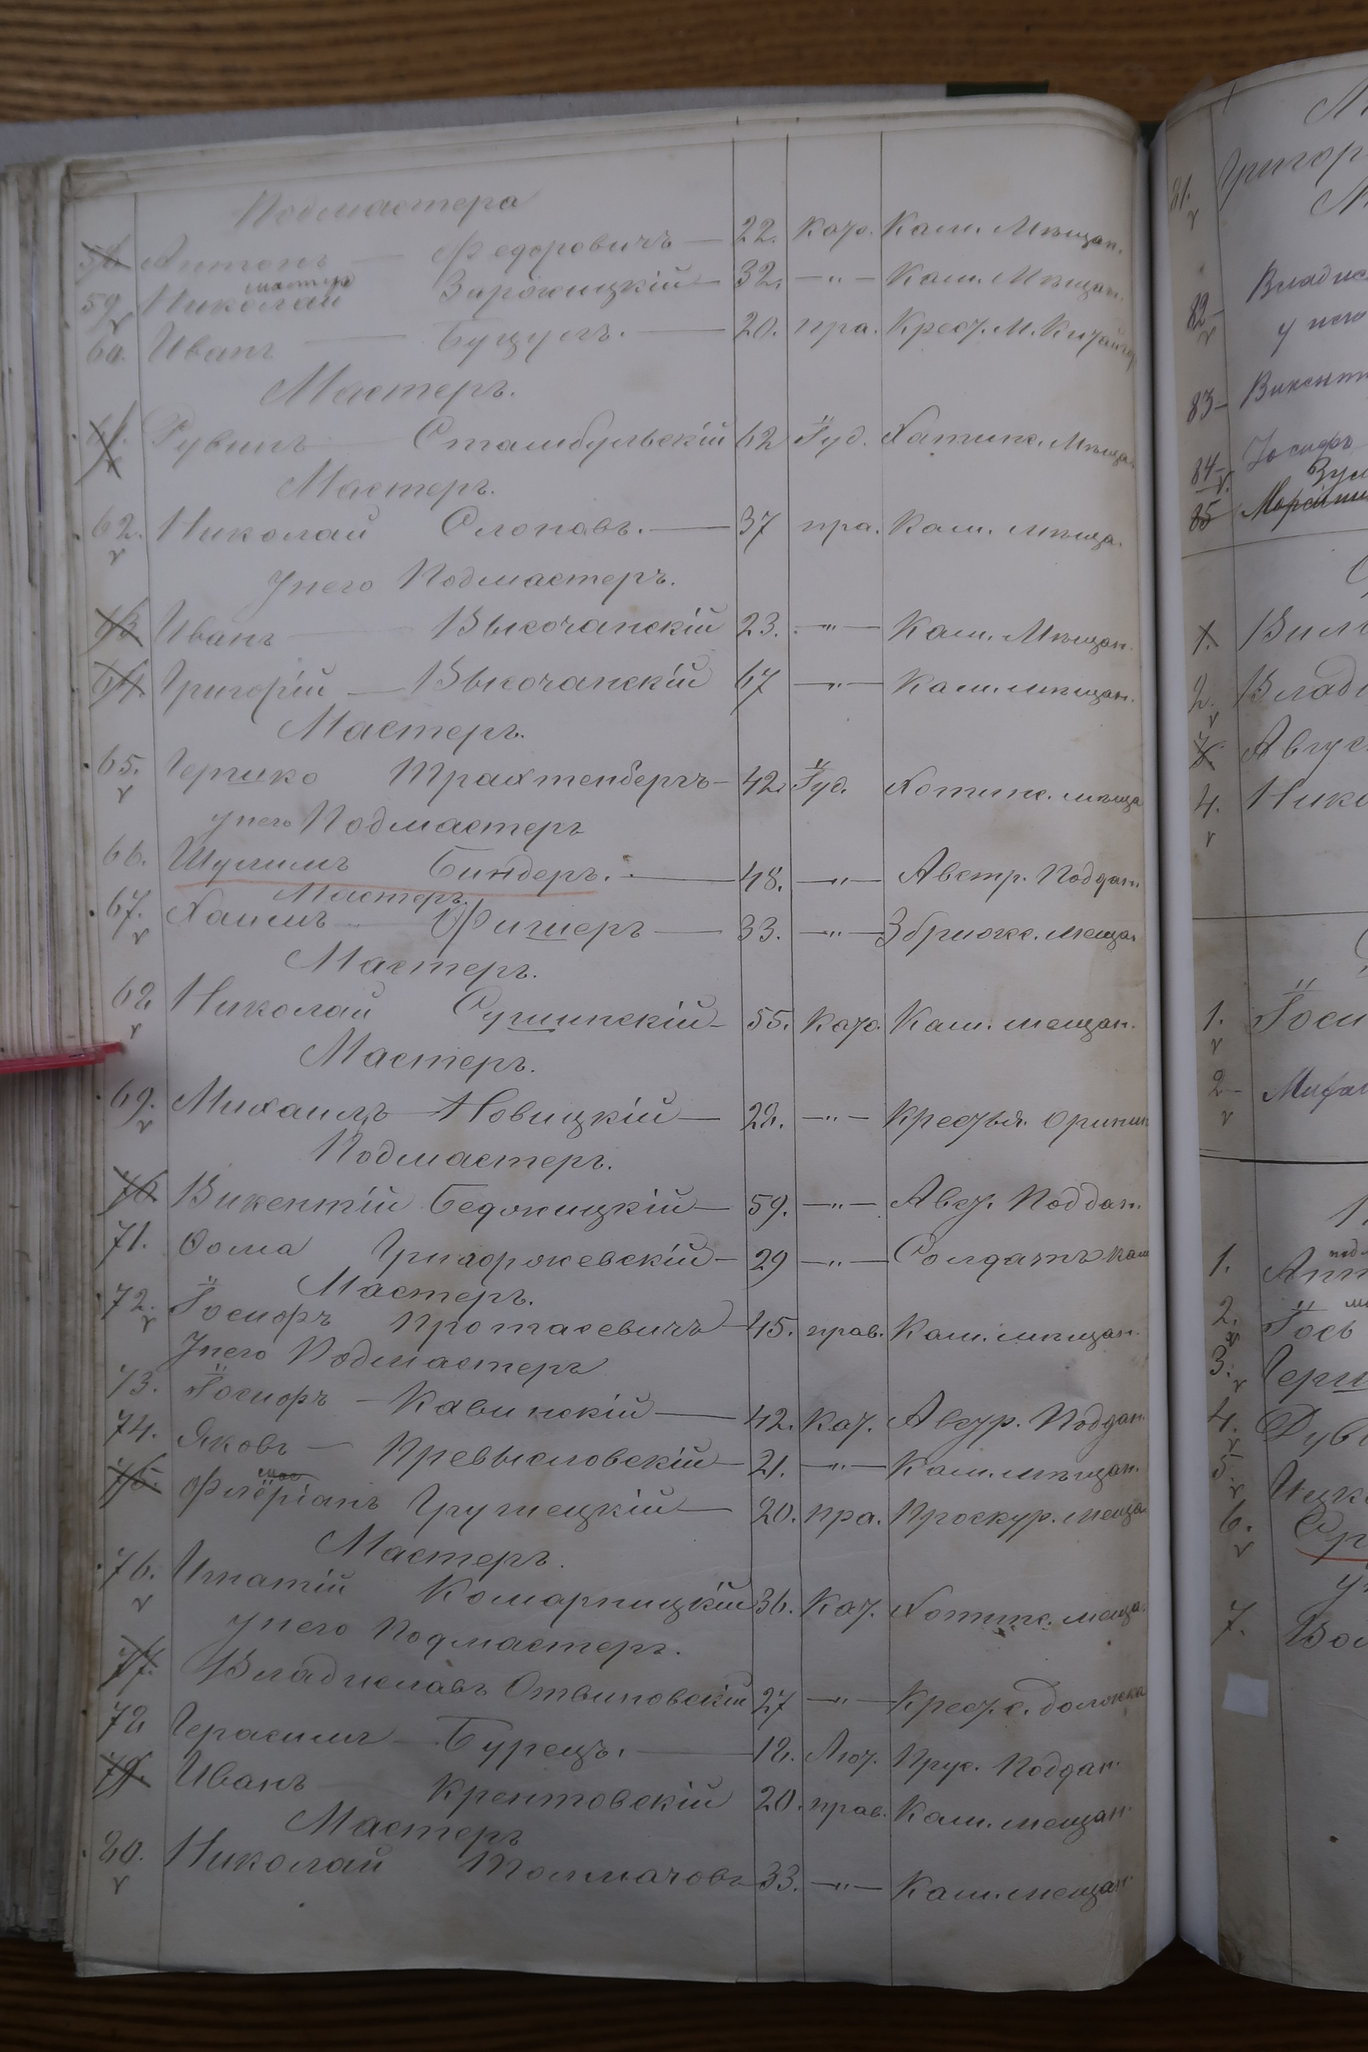 Подмастера
58. Антонъ — Федоровичъ — 22. Кат. Кам. Мѣщан.
мастеръ
59. Николай Зарожицкій — 32. —"— Кам. Мѣщан.
60. Иванъ — Буцулъ. — 20. пра. Крест. М. Китайгор
Мастеръ.
61. Рувинъ Стамбульскій 62 Іуд. Хотинс. Мѣщан
Мастеръ.
62. Николай Слоновъ. — 37 пра. Кам. мѣща.
У него Подмастеръ.
63 Иванъ — Высочанскій 23. —"— Кам. Мѣщан.
64 Григорій — Высочанскій 67 —"— Кам. мѣщан.
Мастеръ.
65. Гершко Трахтенбергъ — 42. Іуд. Хотинс. мѣща
у него Подмастеръ
66. Шулимъ Биндеръ. — 48. —"— Австр. Поддан
Мастеръ.
67. Хаимъ — Фишеръ — 33. —"— Збрижс. мещан
Мастеръ.
68 Николай Сушинскій — 55. Като. Кам. мещан.
Мастеръ.
69. Михаилъ Новицкій — 28. —"— Крестья. Оринин
Подмастеръ.
70. Викентій Беджицкій — 59. —"— Авст. Поддан.
71. Фома — 29 —"— Солдатъ Кам
Мастеръ.
72. Іосифъ Протасевичъ 45. прав. Кам. мѣщан.
У него Подмастеръ
73. Іосифъ — Кавинскій — 42. Кат. Австр. Поддан.
74. Яковъ — Превысловскій — 21. —"— Кам. мѣщан.
75. Флёріанъ Грушецкій — 20. пра. Проскур. меща
Мастеръ.
76. Игнатій Комарницкій 36. Кат. Хотинс. меща.
у него Подмастеръ.
77. Владиславъ Отвиновскій 27 —"— Крест. с. Должка
78 Герасимъ Бурецъ. — 18. Лют. Прус. Поддан.
79. Иванъ Крентовскій 20. прав. Кам. мещан.
Мастеръ
80. Николай Толмачовъ 33. —"— Кам. мещан
81. Григор
82 — Владис
у него
83 — Викент
84 — Іосифъ
85
1. Виль
2. Влад
3. Авгус
4. Нико
1. Іоси
2 — Миха
1.
1. Ант
2. Іось
3. Герш
4. Дув
5. Ицк
6.
у
7. Вол